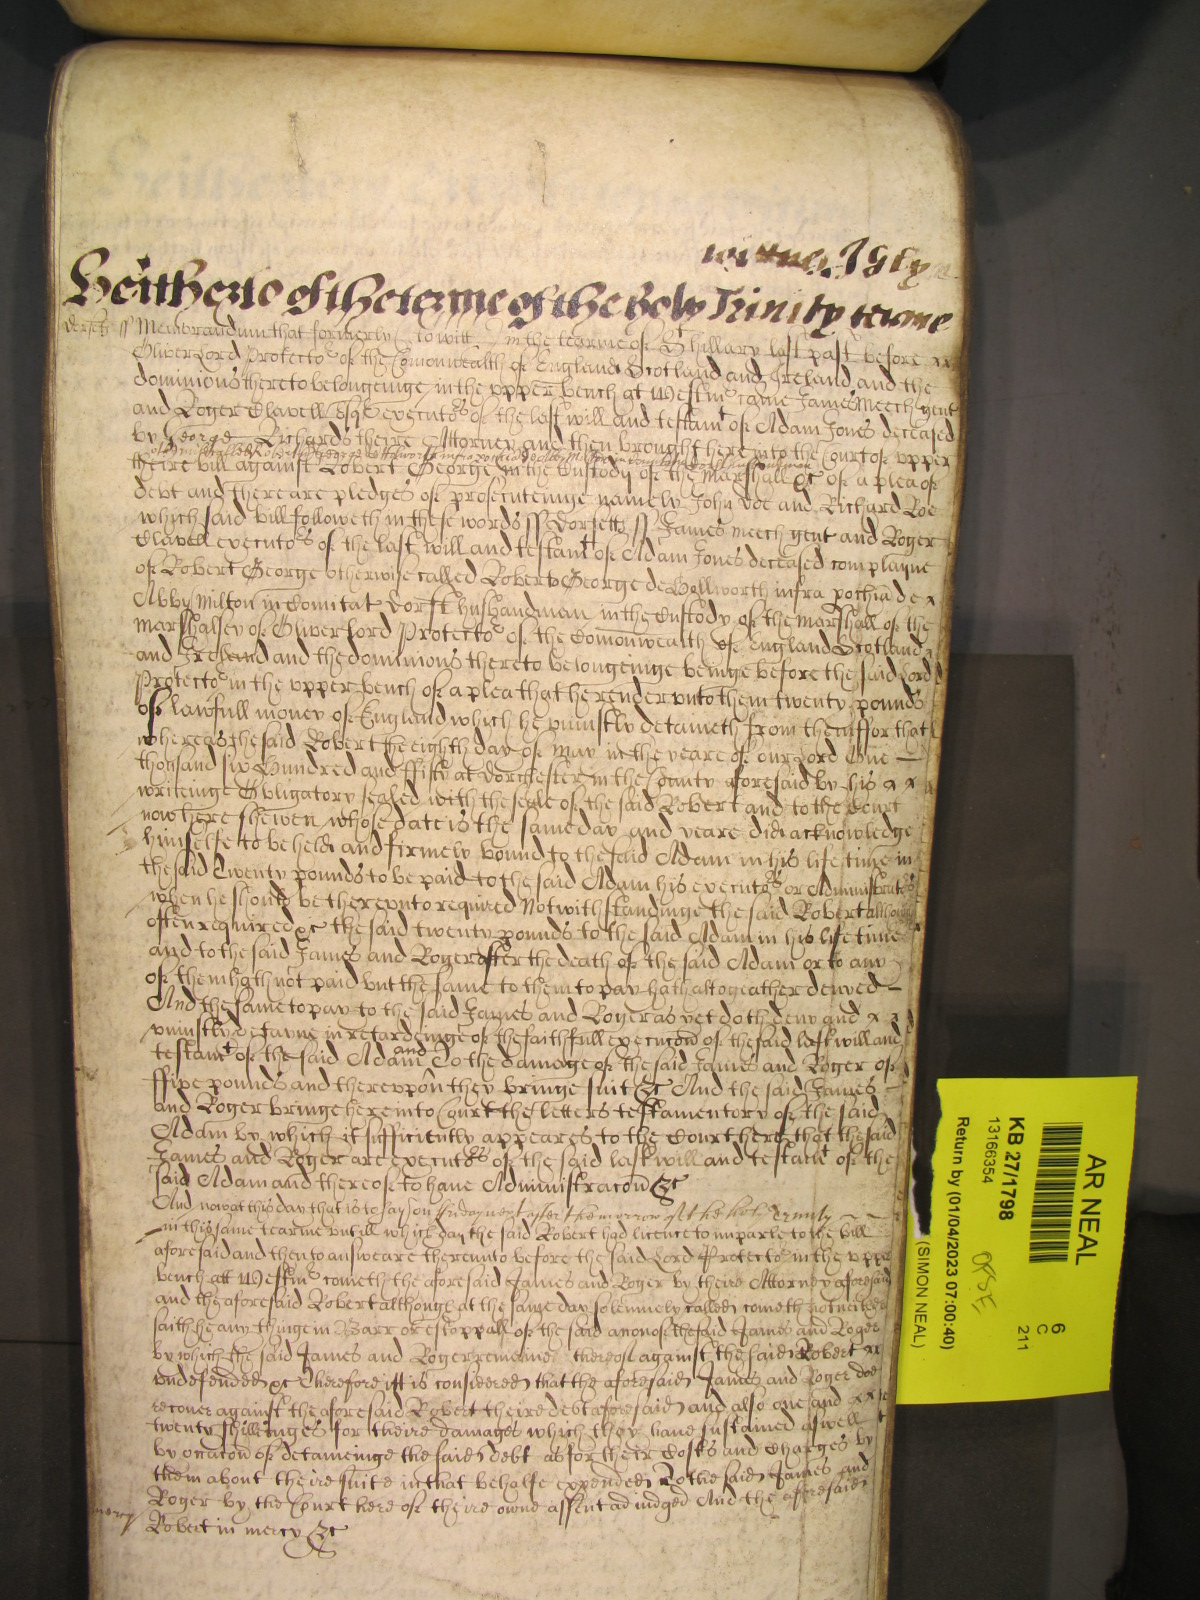 witnes
Heitherto of the terme of the holy Trinity terme
Dorsett ss Memorandum that formerly (to witt) in the tearme of St Hillary last past before
Oliver Lord Protector of the Comonwealth of England Scotland and Ireland and the
dominions thereto belonginge in the vpper bench at Westmr came James Meech gent
and Roger Clavell Esqr executors of the last will and testamt of Adam Jones deceased
by George Richards theire Attorney and then brought here into the Court of vpper
theire bill against Robert George in the Custody of the Marshall &c of a plea of
debt and there are pledges of prosecuteinge namely John Doe and Richard Roe
which said bill followeth in these words ss Dorsett ss James Meech gent and Roger
Clavell executors of the last will and testamt of Adam Jones deceased complayne
of Robert George otherwise called Robert George de Hollworth infra pochia de
Abby Milton in Comitat Dorst husbandman in the Custody of the Marshall of the
Marshalsey of Oliver Lord Protector of the Comonwealth of England Scotland
and Ireland and the dominions thereto belongeinge beinge before the said Lord
Protector in the vpper bench of a plea that he render vnto them twenty pounds
of lawfull money of England which he vniustly detaineth from them ffor that
whereas the said Robert the eighth day of May in the yeare of our Lord One
thousand six hundred and ffifty at Dorchester in the County aforesaid by his
writeinge Obligatory sealed with the seale of the said Robert and to the Court
now here shewen whose date is the same day and yeare did acknowledge
himselfe to be held and firmely bound to the said Adam in his life time in
the said Twenty pounds to be paid to the said Adam his executors or Administrators
when he should be therevnto required Notwithstandinge the said Robert although
often required &c the said twenty pounds to the said Adam in his life time
and to the said James and Roger after the death of the said Adam or to any
of them hath not paid but the same to them to pay hath altogeather denyed
And the same to pay to the said James and Roger as yet doth deny and
vniustly detayne in retardeinge of the faithfull execucon of the said last will and
testamt of the said Adam and To the damage of the said James and Roger of
ffive pounds and therevppon they bringe suit &c And the said James
and Roger bringe here into Court the letters testamentory of the said
Adam by which it sufficiently appeares to the Court here that the said
James and Roger are executors of the said last will and testamt of the
said Adam and thereof to haue Administracon &c
And now at this day that is to say on ffriday next after the morrow of the holy Trinity
in this same tearme vntill which day the said Robert had licence to imparle to the bill
aforesaid and then to answeare therevnto before the said Lord Protector in the vpper
bench att Westmr cometh the aforesaid James and Roger by theire Attorney aforesaid
and the aforesaid Robert although at the same day solemnely called cometh not neither
saith he any thinge in Barr or estoppall of the said accon of the said James and Roger
by which the said James and Roger remaine thereof against the said Robert
vndefended &c Therefore itt is considered that the aforesaid James and Roger doe
recouer against the aforesaid Robert theire debt aforesaid and also one and
twenty shillinges for theire damages which they haue sustained aswell
by occacon of detaineinge the said debt as for their Costs and Charges by
them about theire suite in that behalfe expended To the said James and
Roger by the Court here of theire owne assent adiudged And the aforesaid
mercy Robert in mercy &c
AR NEAL
KB 27/1798
13166354
Return by (01/04/2023 07:00:40)
(SIMON NEAL)
6
C
211